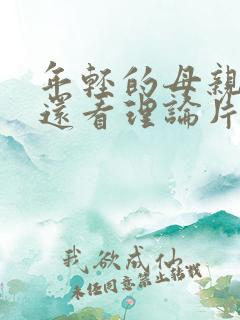 年軽的母親
還看理論片
我欲成仙
未经同意禁止转载